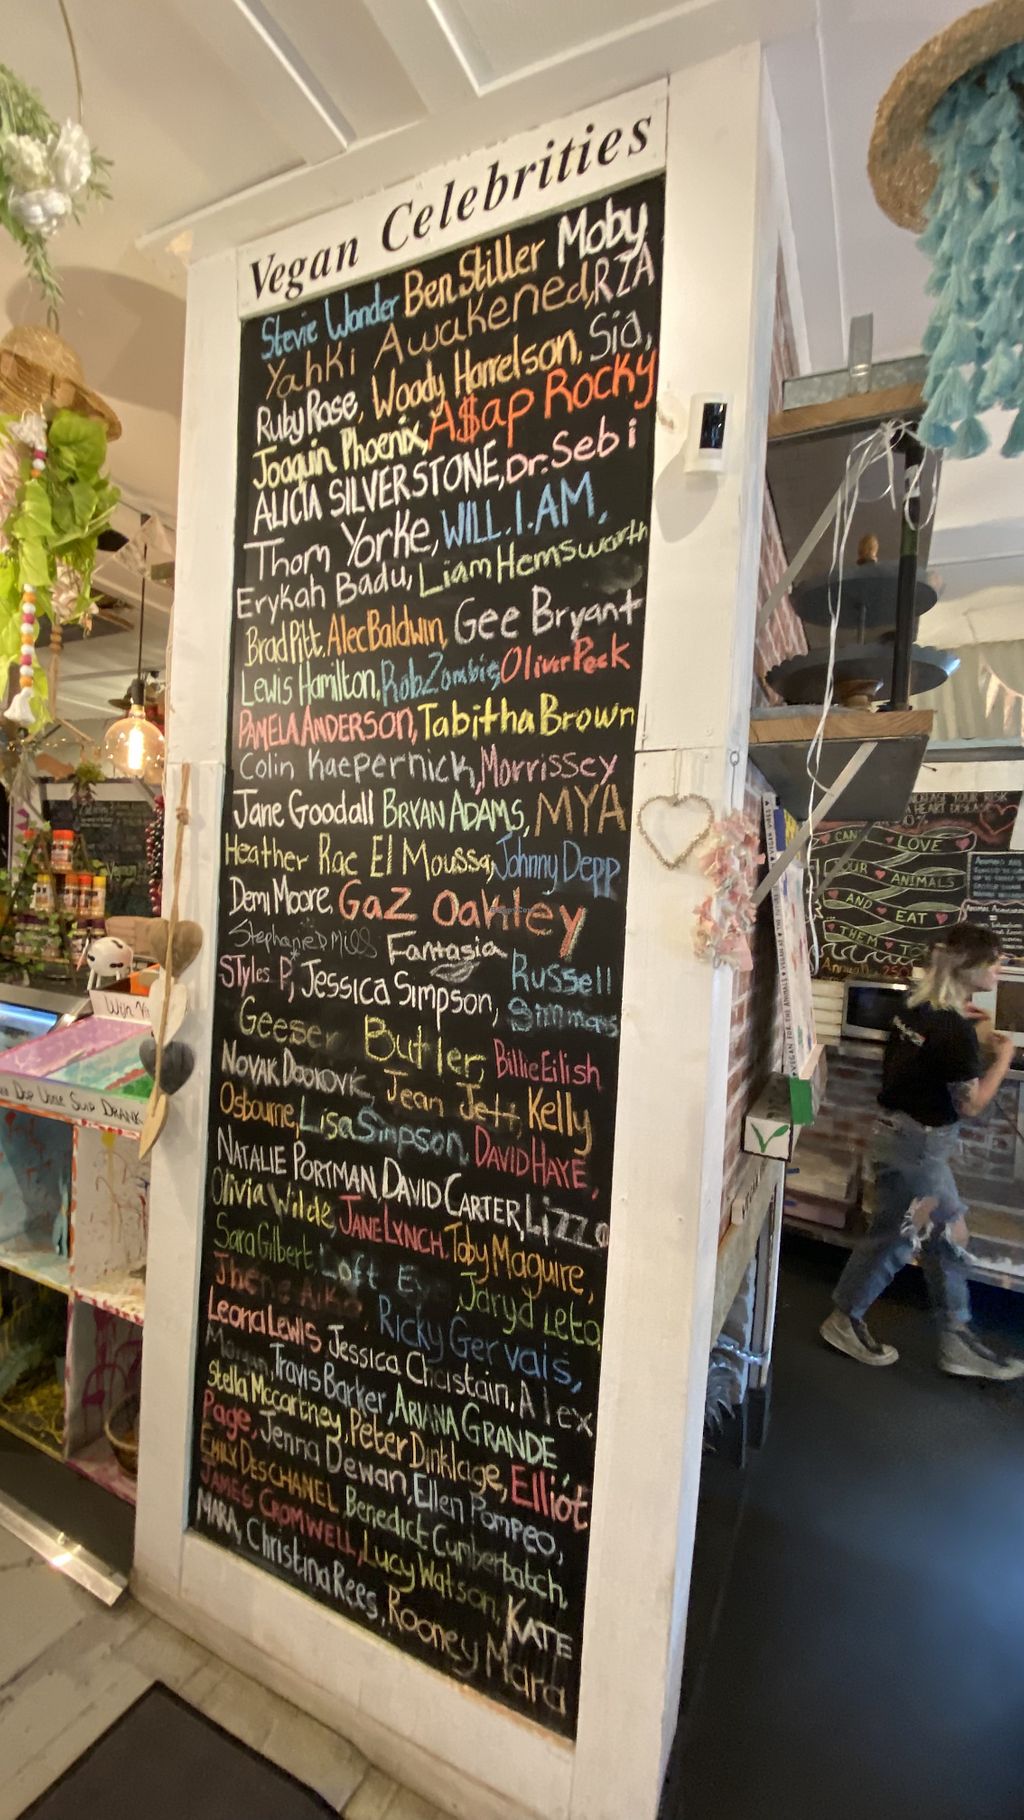 Vegan Celebrities
Stevie Wonder Ben Stiller Moby
Yahki Awakened, RZA
Ruby Rose, Woody Harrelson, Sia,
Joaquin Phoenix, A$ap Rocky
ALICIA SILVERSTONE, Dr. Sebi
Thom Yorke, WILL.I.AM,
Erykah Badu, Liam Hemsworth
Brad Pitt, Alec Baldwin, Gee Bryant
Lewis Hamilton, Rob Zombie, Oliver Peck
PAMELA ANDERSON, Tabitha Brown
Colin Kaepernick, Morrissey
Jane Goodall BRYAN ADAMS, MYA
Heather Rae El Moussa, Johnny Depp
Demi Moore, Gaz Oakley
Stephanie D Mills Fantasia Russell
Styles P, Jessica Simpson, Simmons
Geeser Butler, Billie Eilish
NOVAK DJOKOVIC Jean Jett Kelly
Osbourne, Lisa Simpson, DAVID HAYE,
NATALIE PORTMAN, DAVID CARTER, Lizzo
Olivia Wilde, JANE LYNCH, Toby Maguire,
Sara Gilbert Loft E, Jaryd Leto,
Jhene Aiko, Ricky Gervais,
Leona Lewis Jessica Chaistain, Alex
Morgan, Travis Barker, ARIANA GRANDE,
Stella McCartney, Peter Dinklage, Elliot
Page, Jenna Dewan, Ellen Pompeo,
EMILY DESCHANEL, Benedict Cumberbatch,
JAMES CROMWELL, Lucy Watson, KATE
MARA, Christina Rees, Rooney Mara
Win
DRANK
CAN LOVE
YOUR ANIMALS
AND EAT
THEM